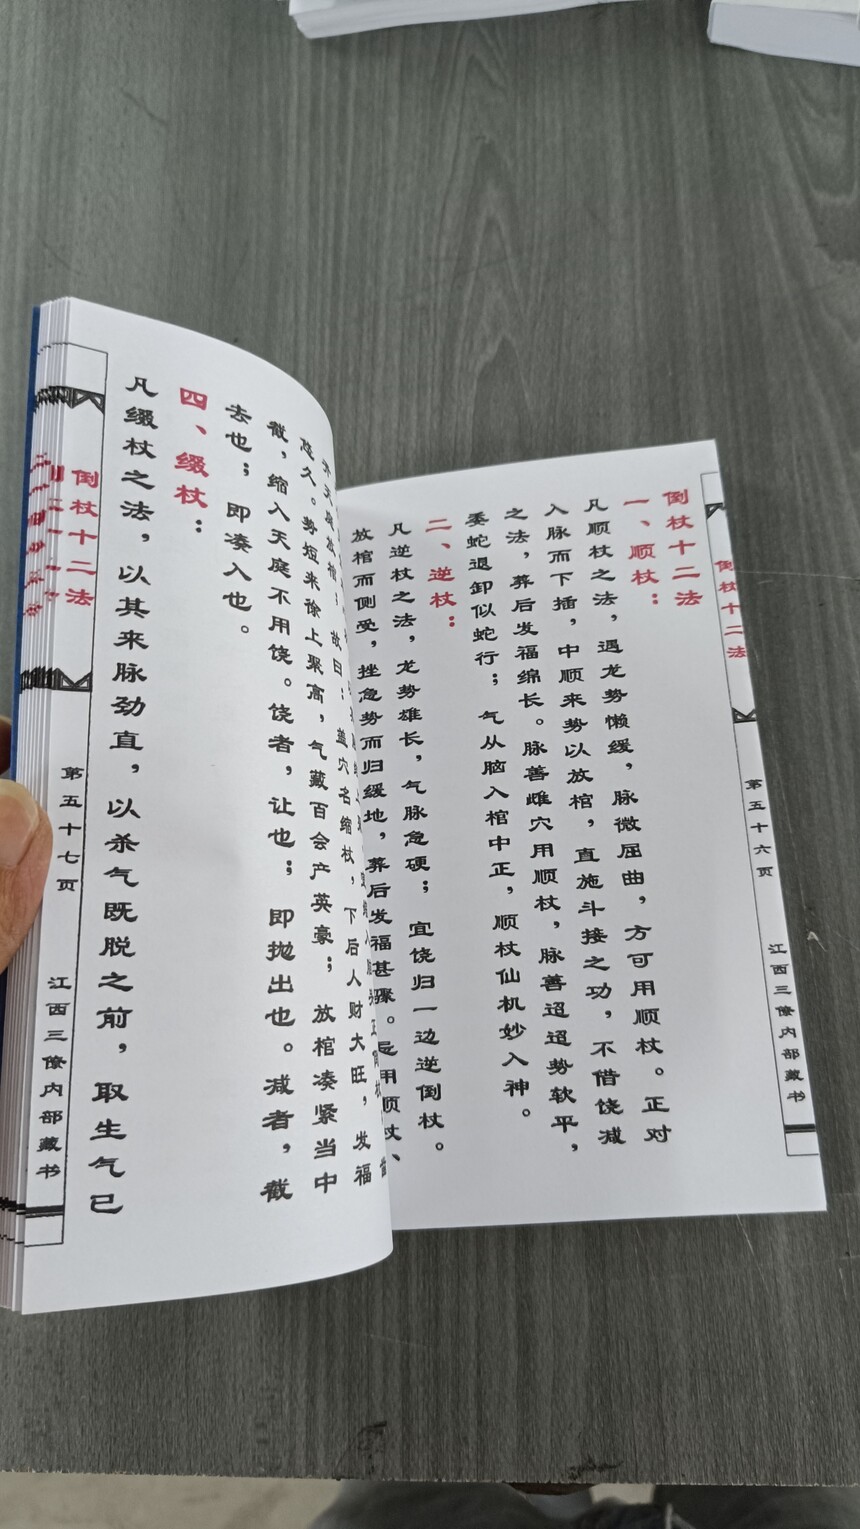 倒杖十二法
第五十六页
江西三僚内部藏书
倒杖十二法
一、顺杖：
凡顺杖之法，遇龙势懒缓，脉微屈曲，方可用顺杖。正对
入脉而下插，中顺来势以放棺，直施斗接之功，不借饶减
之法，葬后发福绵长。脉善雌穴用顺杖，脉善迢迢势软平，
委蛇退卸似蛇行；气从脑入棺中正，顺杖仙机妙入神。
二、逆杖：
凡逆杖之法，龙势雄长，气脉急硬；宜饶归一边逆倒杖。
放棺而侧受，挫急势而归缓地，葬后发福甚骤。用顺杖、
故曰：盖穴名缩杖，下后人财大旺，发福
悠久。势短来徐上聚高，气藏百会产英豪；放棺凑紧当中
截，缩入天庭不用饶。饶者，让也；即抛出也。减者，截
去也；即凑入也。
四、缀杖：
凡缀杖之法，以其来脉劲直，以杀气既脱之前，取生气已
倒杖十二法
第五十七页
江西三僚内部藏书